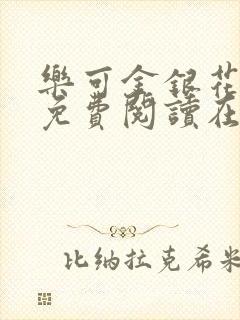 樂可金銀花
免費閱讀在
比纳拉克希米